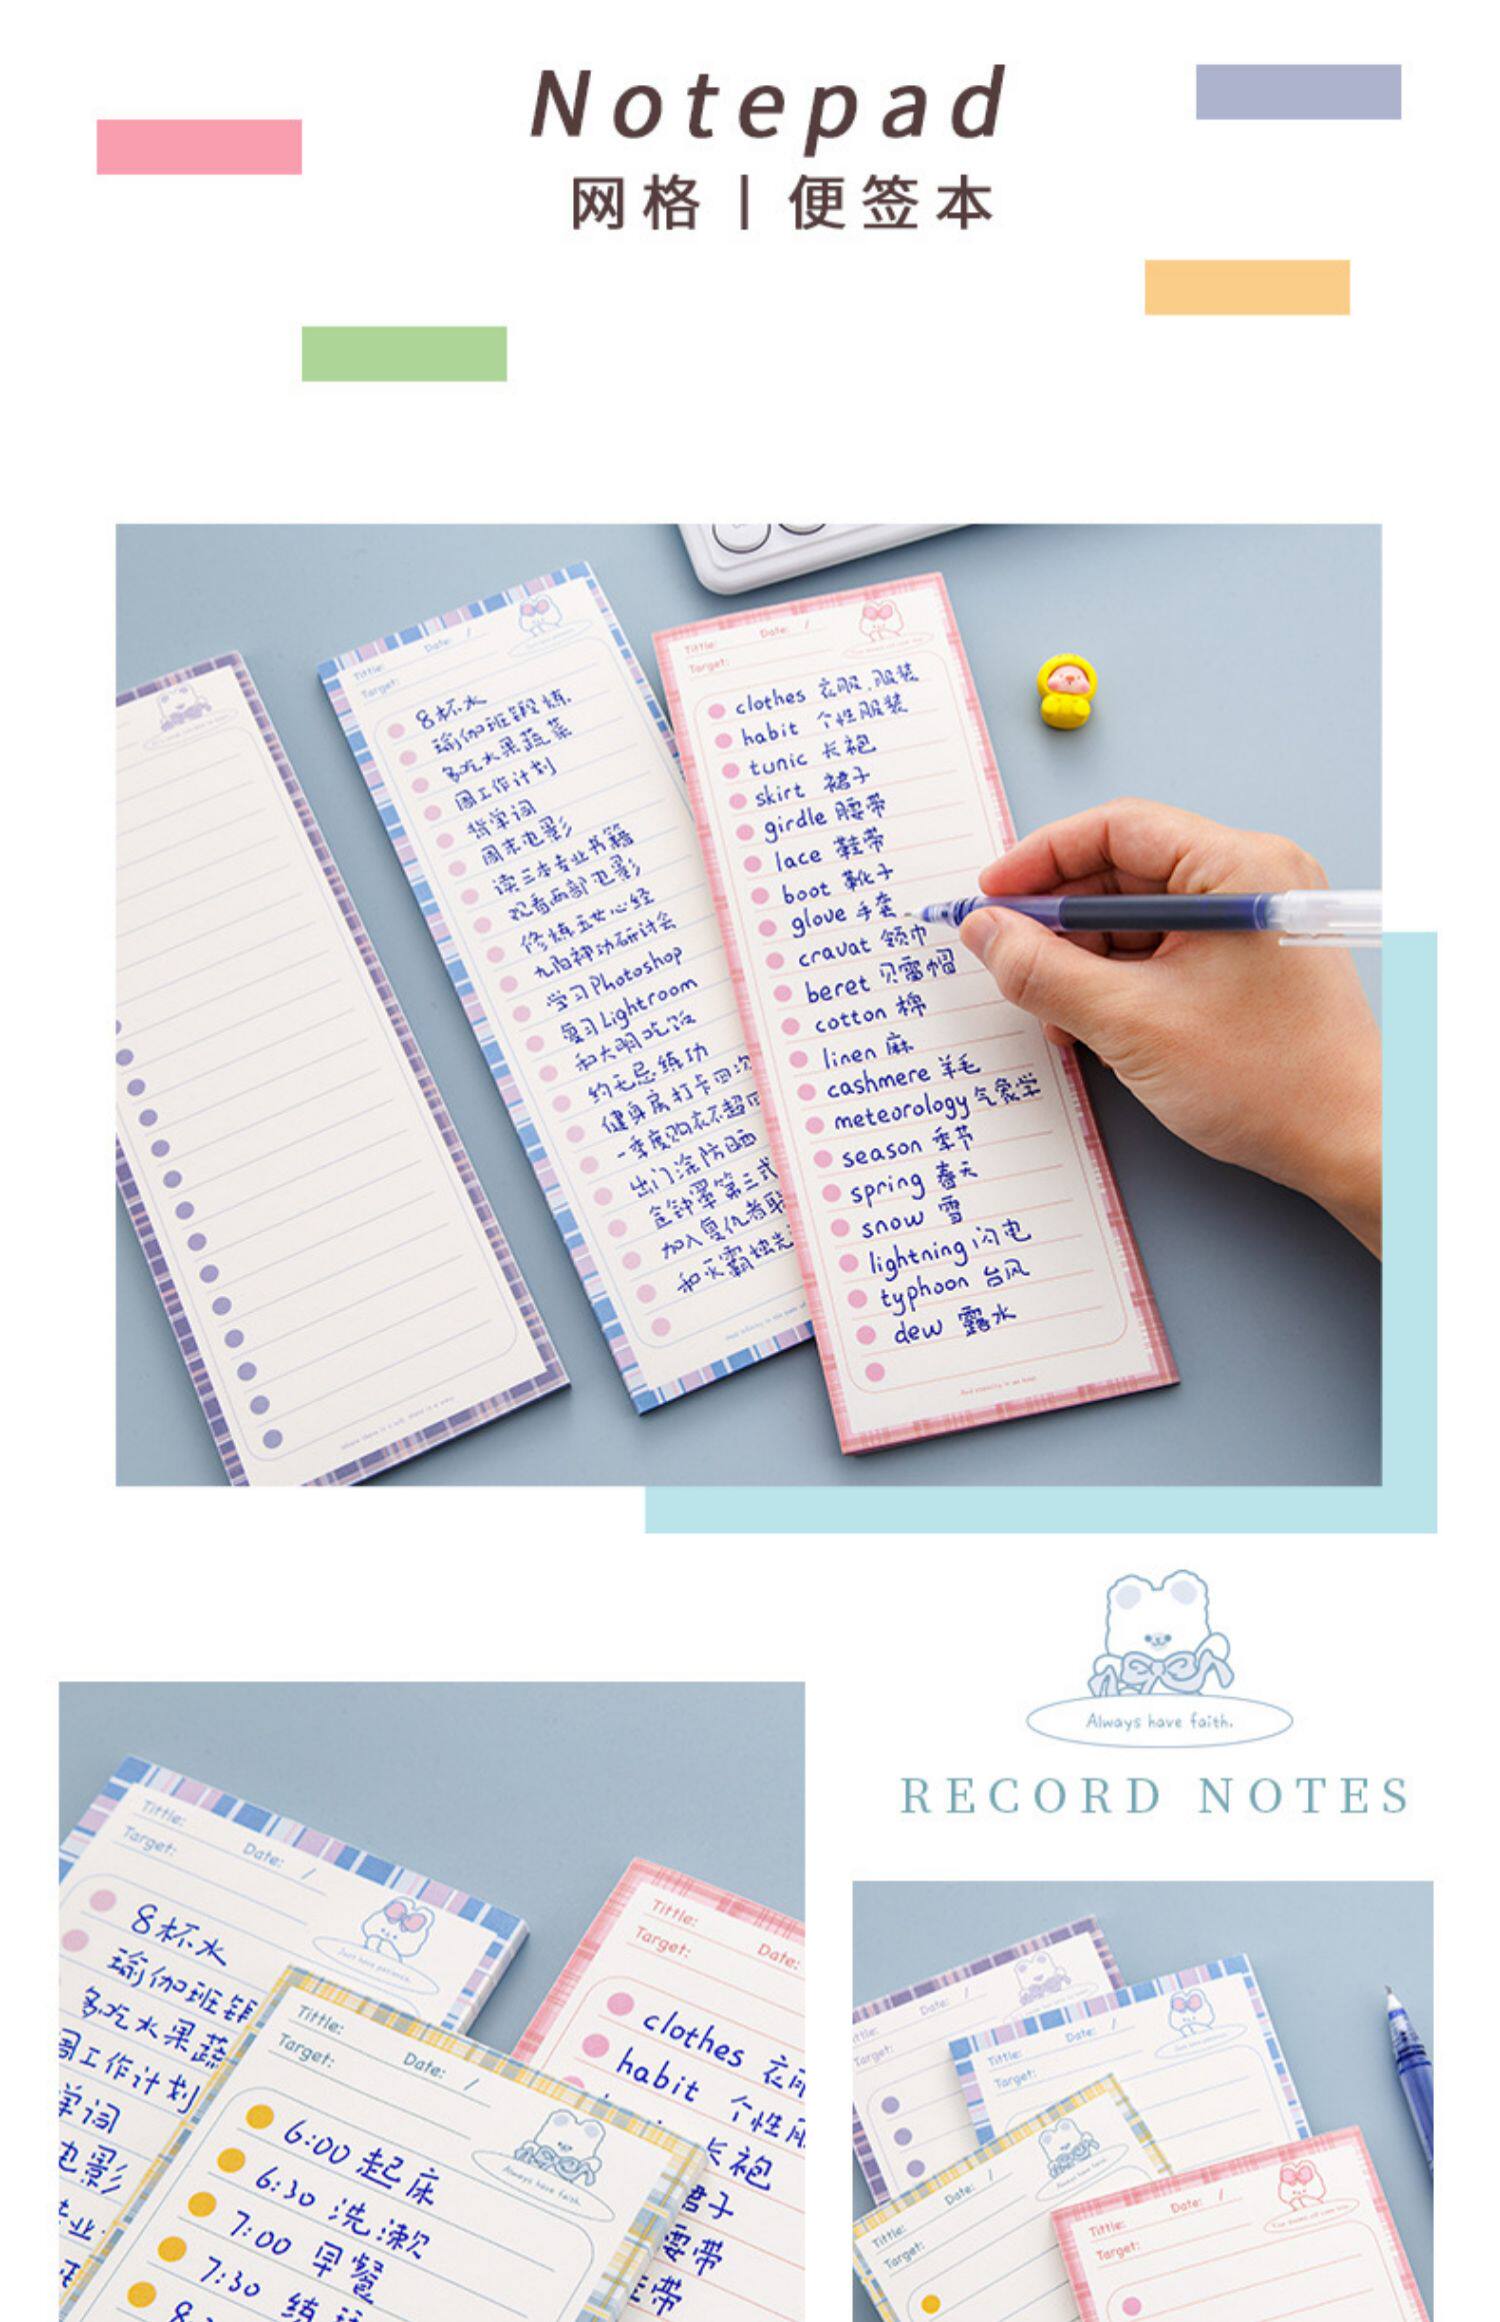 Notepad
网格丨便签本
Tittle:
Date: /
Target:
8杯水
瑜伽班锻炼
多吃水果蔬菜
周工作计划
背单词
周末电影
读三本专业书籍
观看两部电影
修炼玉女心经
九阳神功研讨会
学习Photoshop
复习Lightroom
和大明吃饭
约无忌练功
健身房打卡四次
一季度购衣不超
出门涂防晒
金钟罩第三式
加入复仇者联
和灭霸抢
Tittle:
Date: /
Target:
clothes 衣服,服装
habit 个性服装
tunic 长袍
skirt 裙子
girdle 腰带
lace 鞋带
boot 靴子
glove 手套
cravat 领巾
beret 贝雷帽
cotton 棉
linen 麻
cashmere 羊毛
meteorology 气象学
season 季节
spring 春天
snow 雪
lightning 闪电
typhoon 台风
dew 露水
Always have faith.
RECORD NOTES
Tittle:
Date: /
Target:
Just have patience.
8杯水
瑜伽班锻
多吃水果蔬
周工作计划
单词
电影
业
Tittle:
Target:
Date: /
Always have faith.
6:00 起床
6:30 洗漱
7:00 早餐
7:30 练
Tittle:
Target:
Date:
clothes 衣
habit 个性
长袍
裙子
腰带
带
Date: /
Target:
Tittle:
Date: /
Target:
Tittle:
Date: /
Target:
Tittle:
Date: /
Target: